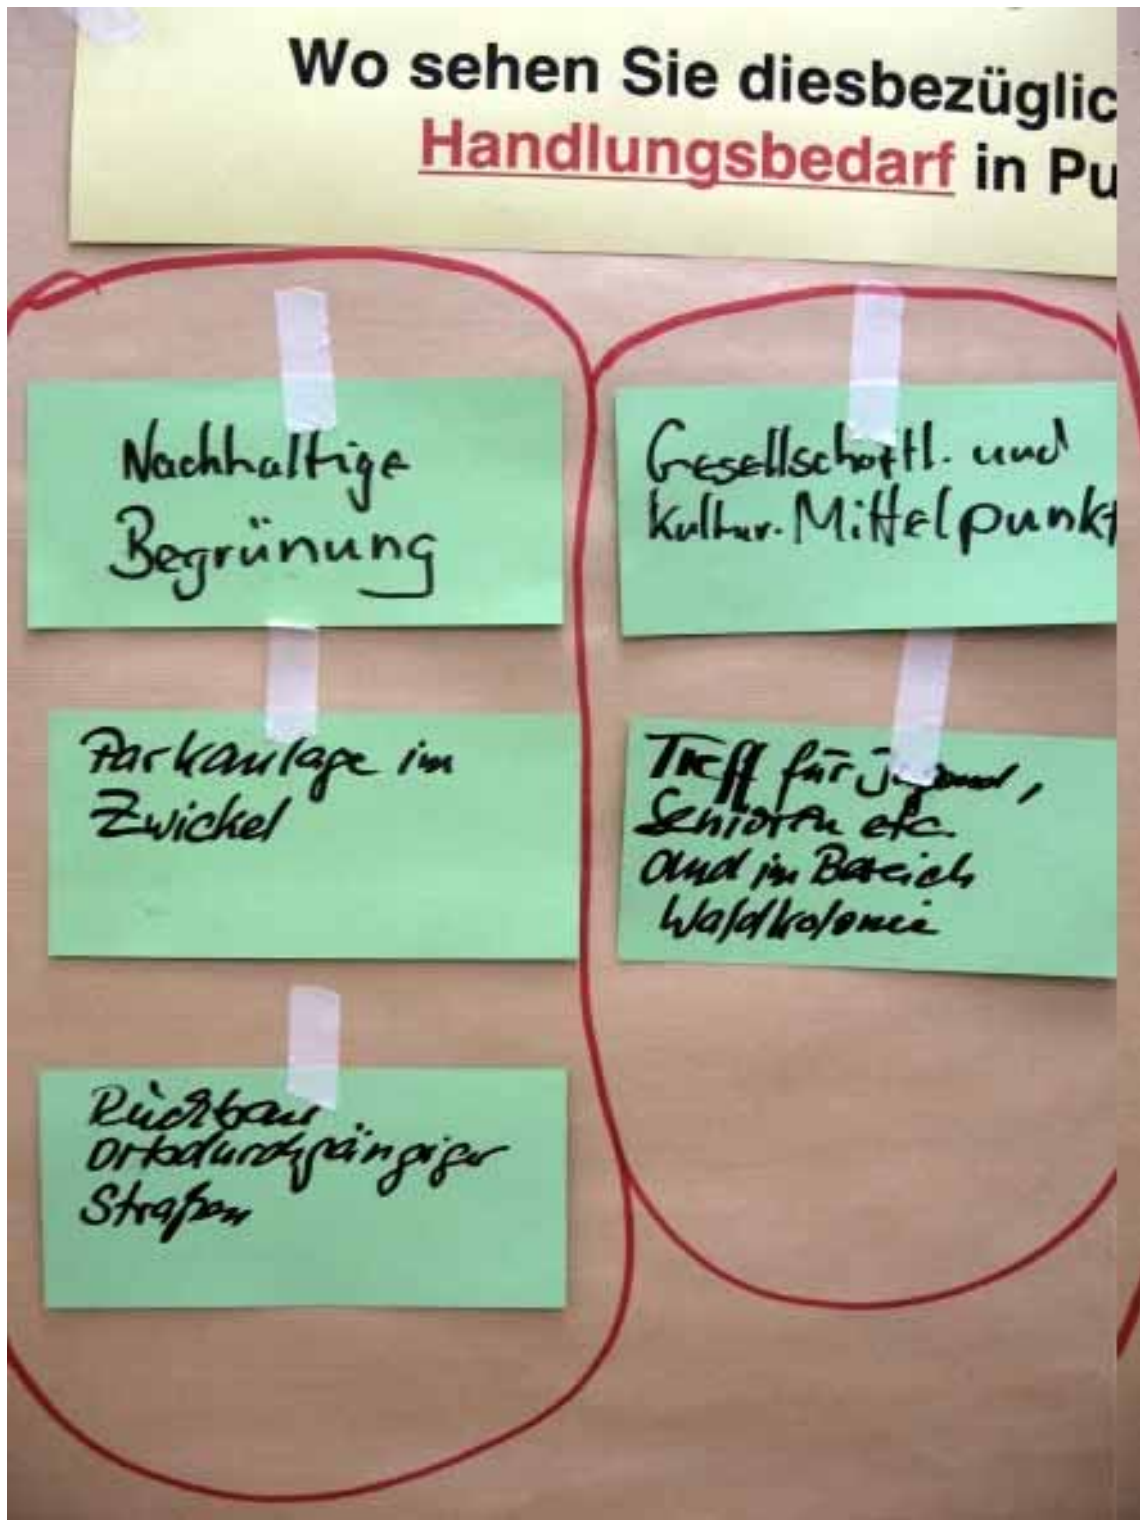 Wo sehen Sie diesbezüglic
Handlungsbedarf in Pu
Nachhaltige
Begrünung
Parkanlage im
Zwickel
Rückbau
ortsdurchgängiger
Straßen
Gesellschaftl. und
kultur. Mittelpunkt
Treff für Jugend,
Senioren etc.
im Bereich
Waldkolonie